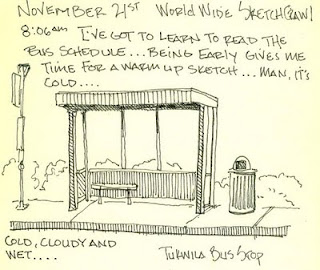 NOVEMBER 21ST WORLD WIDE SKETCHCRAWL
8:06AM I'VE GOT TO LEARN TO READ THE
BUS SCHEDULE... BEING EARLY GIVES ME
TIME FOR A WARM UP SKETCH... MAN, IT'S
COLD....
COLD, CLOUDY AND
WET....
TUKWILA BUS STOP